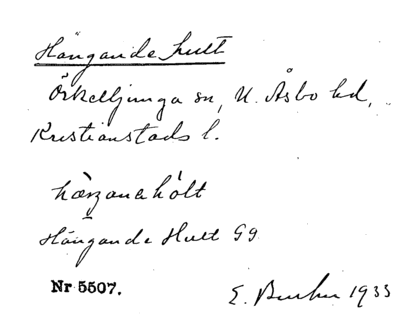 Hängande hult
Örkelljunga sn, N. Åsbo hd,
Kristianstads l.
Hängande Hult Gg
Nr 5507.
E. 1933